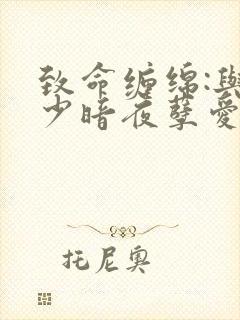 致命缠绵:與
少暗夜孽愛
托尼奥